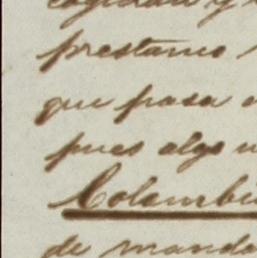 prestamo
que pasa
pues algo
Colombi
de manda